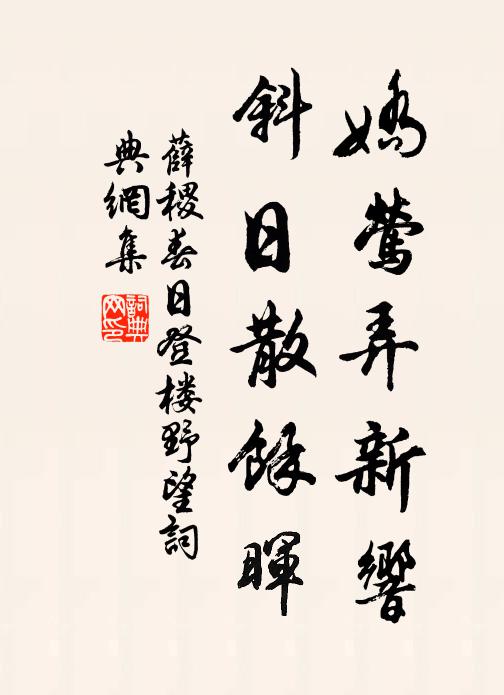 嬌鶯弄新響
斜日散餘暉
薛稷春日登楼野望詞
典網集
詞典
网印